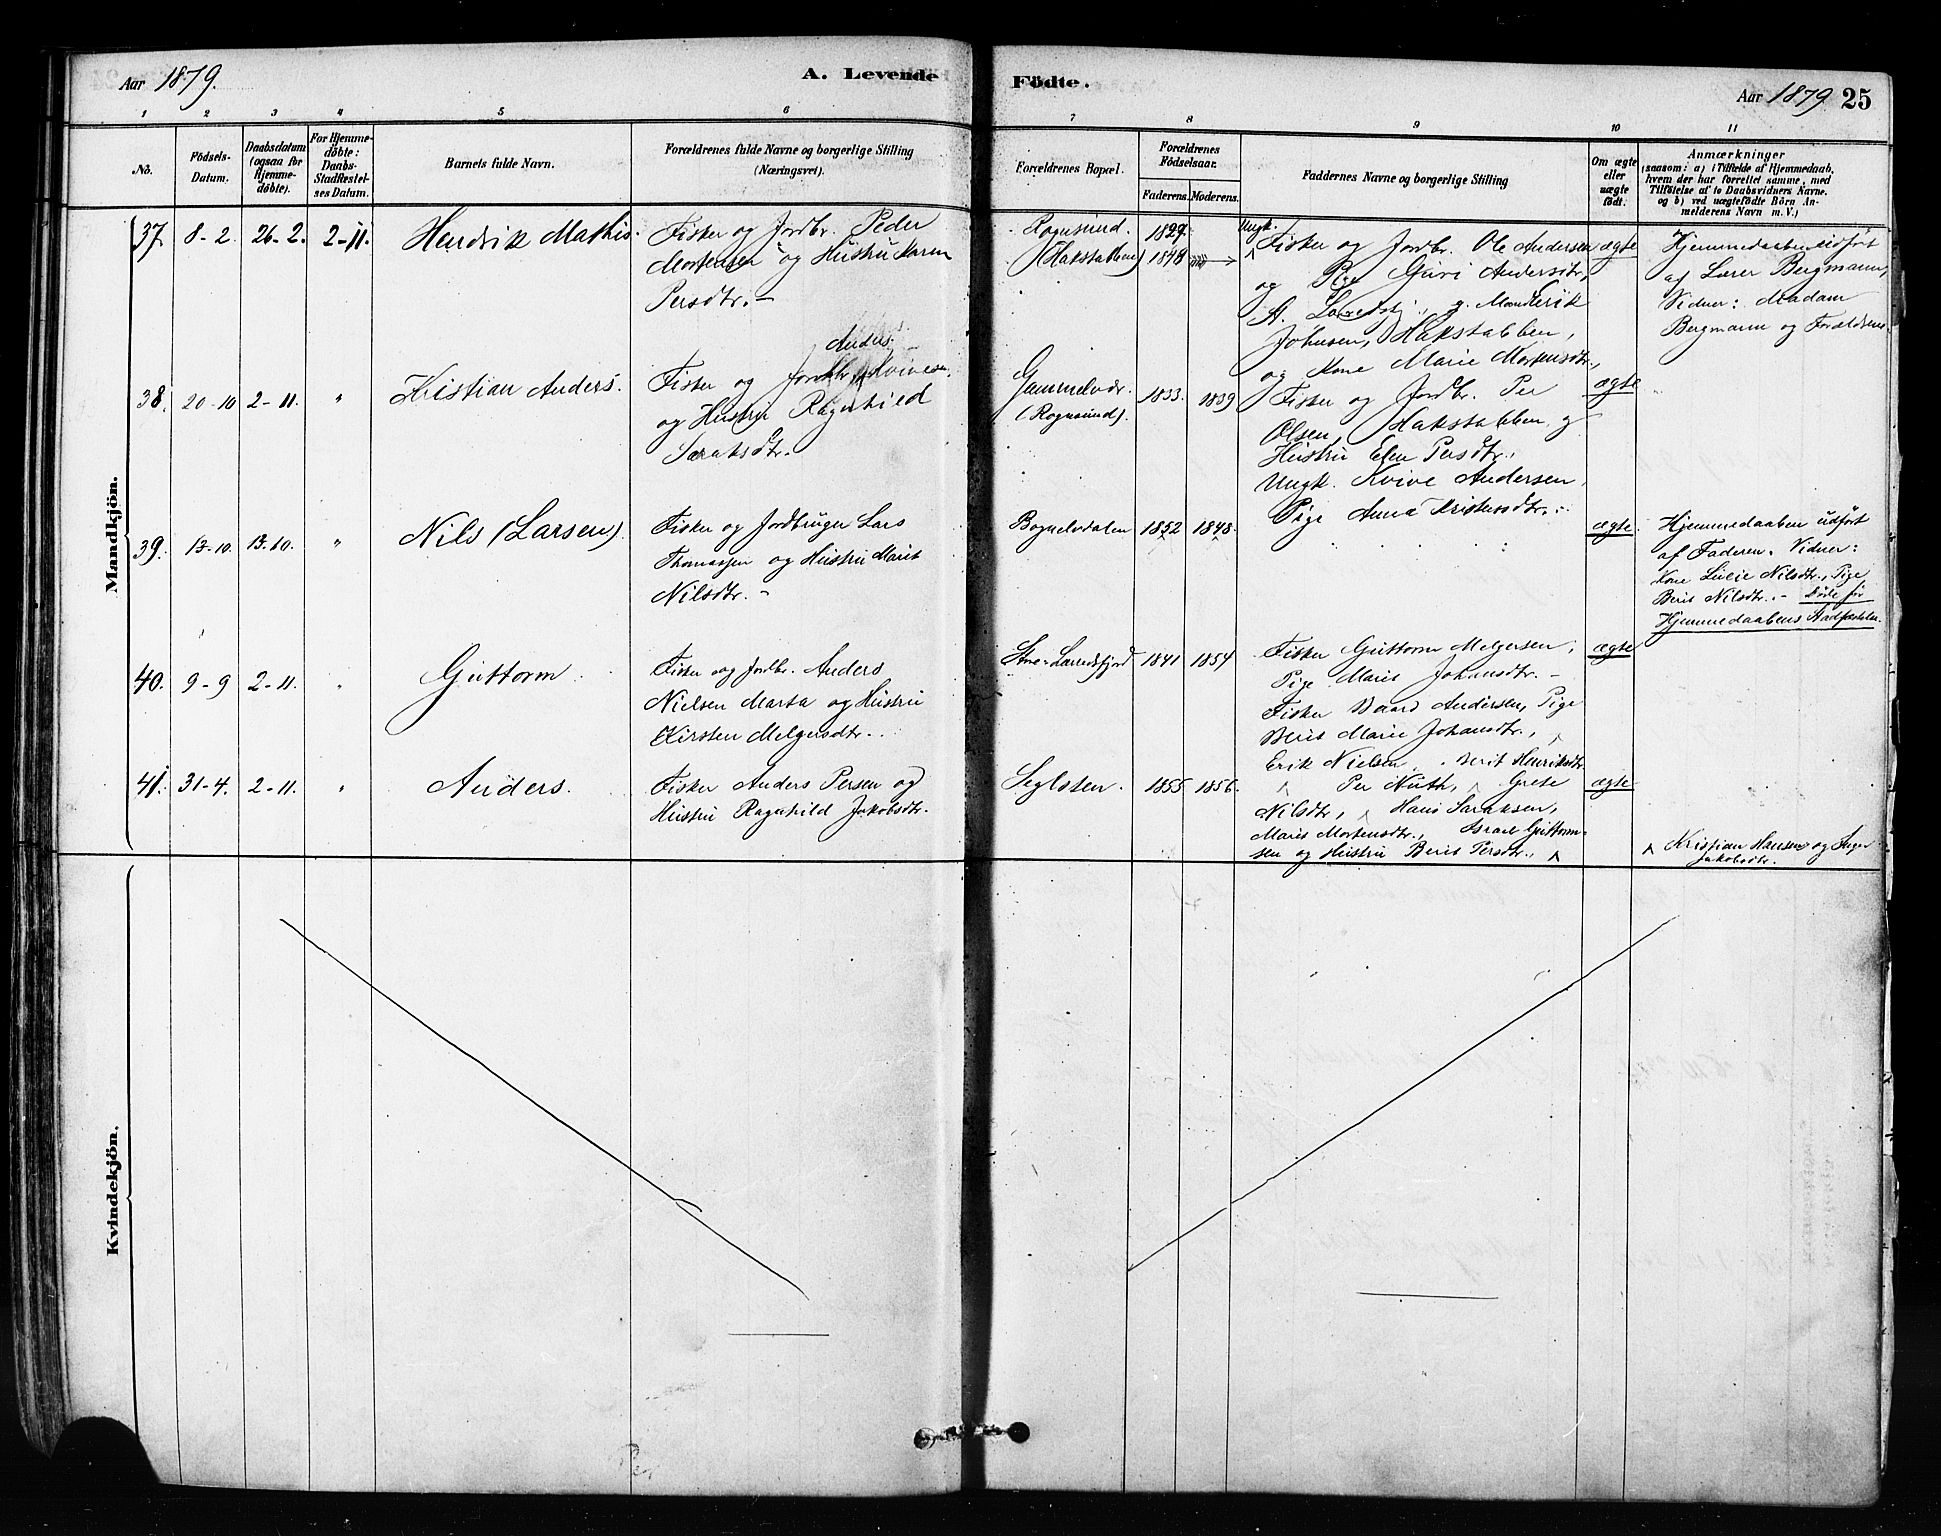 Aar 1879.
A. Levende Födte.
Aar 1879 25
1 2 3 4 5 6 7 8 9 10 11
No.
Födsels-Datum.
Daabsdatum (ogsaa for Hjemmedöbte).
For Hjemmedöbte: Daabs-Stadfæstelses Datum.
Barnets fulde Navn.
Forældrenes fulde Navne og borgerlige Stilling (Næringsvei).
Forældrenes Bopæl.
Forældrenes Födselsaar.
Faderens. Moderens.
Faddernes Navne og borgerlige Stilling
Om ægte eller uægte födt.
Anmærkninger
(saasom: a) i Tilfælde af Hjemmedaab,
hvem der har forrettet samme, med
Tilföielse af to Daabsvidners Navne.
og b) ved uægtefödte Börn Anmelderens Navn m.V.)
Mandkjön.
37. 8-2. 26-2. 2-11. Hendrik Mathis.
Fisker og Jordbr. Peder
Mortensen og Hustru Karen
Persdtr. -
Rognsund.
(Hakstabben)
1827. 1848
Ungk. Fisker og Jordbr. Ole Andersen
og Pige Guri Andersdtr,
Erik
Johnsen, Hakstabben,
og Kone Marie Mortensdtr.,
ægte
Hjemmedaaben udført
af Lærer Bergmann,
Vidner: Madam
Bergmann og Forældrene
38. 20-10 2-11. " Kristian Anders.
Anders
Fisker og Jordbr. Kvivesen
og Hustru Ragnhild
Saraksdtr.
Gammelvær.
(Rognsund).
1833. 1839
Fisker og Jordbr. Per
Olsen, Hakstabben g
Hustru Elen Persdtr.,
Ungk. Kvive Andersen,
Pige Anna Kristensdtr.:
ægte
39. 13-10. 13-10. " Nils (Larsen).
Fisker og Jordbruger Lars
Thomassen og Hustru Marit
Nilsdtr. -
Bognelvdalen 1852 1848.
ægte.
Hjemmedaaben udført
af Faderen. Vidner:
Kone Nilsdtr., Pige
Berit Nilsdtr. - Døde før
Hjemmedaabens Stadfæstelse.
40. 9-9 2-11. " Guttorm
Fisker og Jordbr. Anders
Nielsen Marta og Hustru
Kirsten Melgersdtr..
Store-Lerredsfjord 1841 1854
Fisker Guttorm Melgersen,
Pige Marit Johansdtr. -
Fisker Baard Andersen, Pige
Berit Marie Johansdtr.,
Erik Nielsen, Berit Henriksdtr
ægte
41. 31-4. 2-11. " Anders.
Fisker Anders Persen og
Hustru Ragnhild Jakobsdtr.
Seglsten. 1855 1856.
Per Nuth, Grete
Nilsdtr, Hans Saraksen,
Marit Mortensdtr., Israel Guttorm-
sen og Hustru Berit Persdtr.,
ægte
Kristian Hansen og Inger
Jakobsdtr.
Kvindekjön.
Per